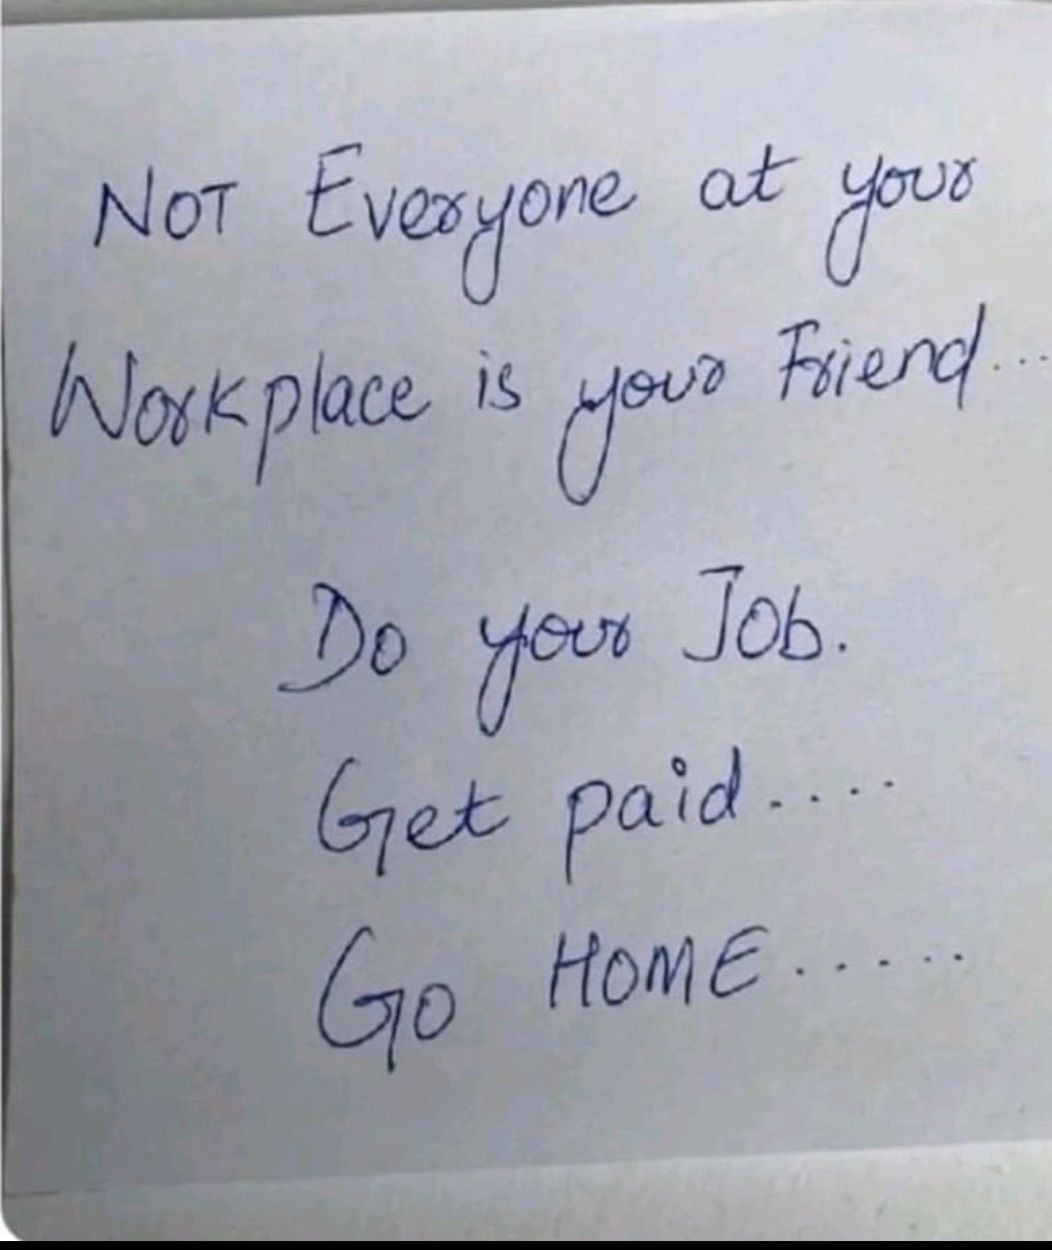 NOT Everyone at your
Workplace is your Friend...
Do your Job.
Get paid....
Go HOME.....